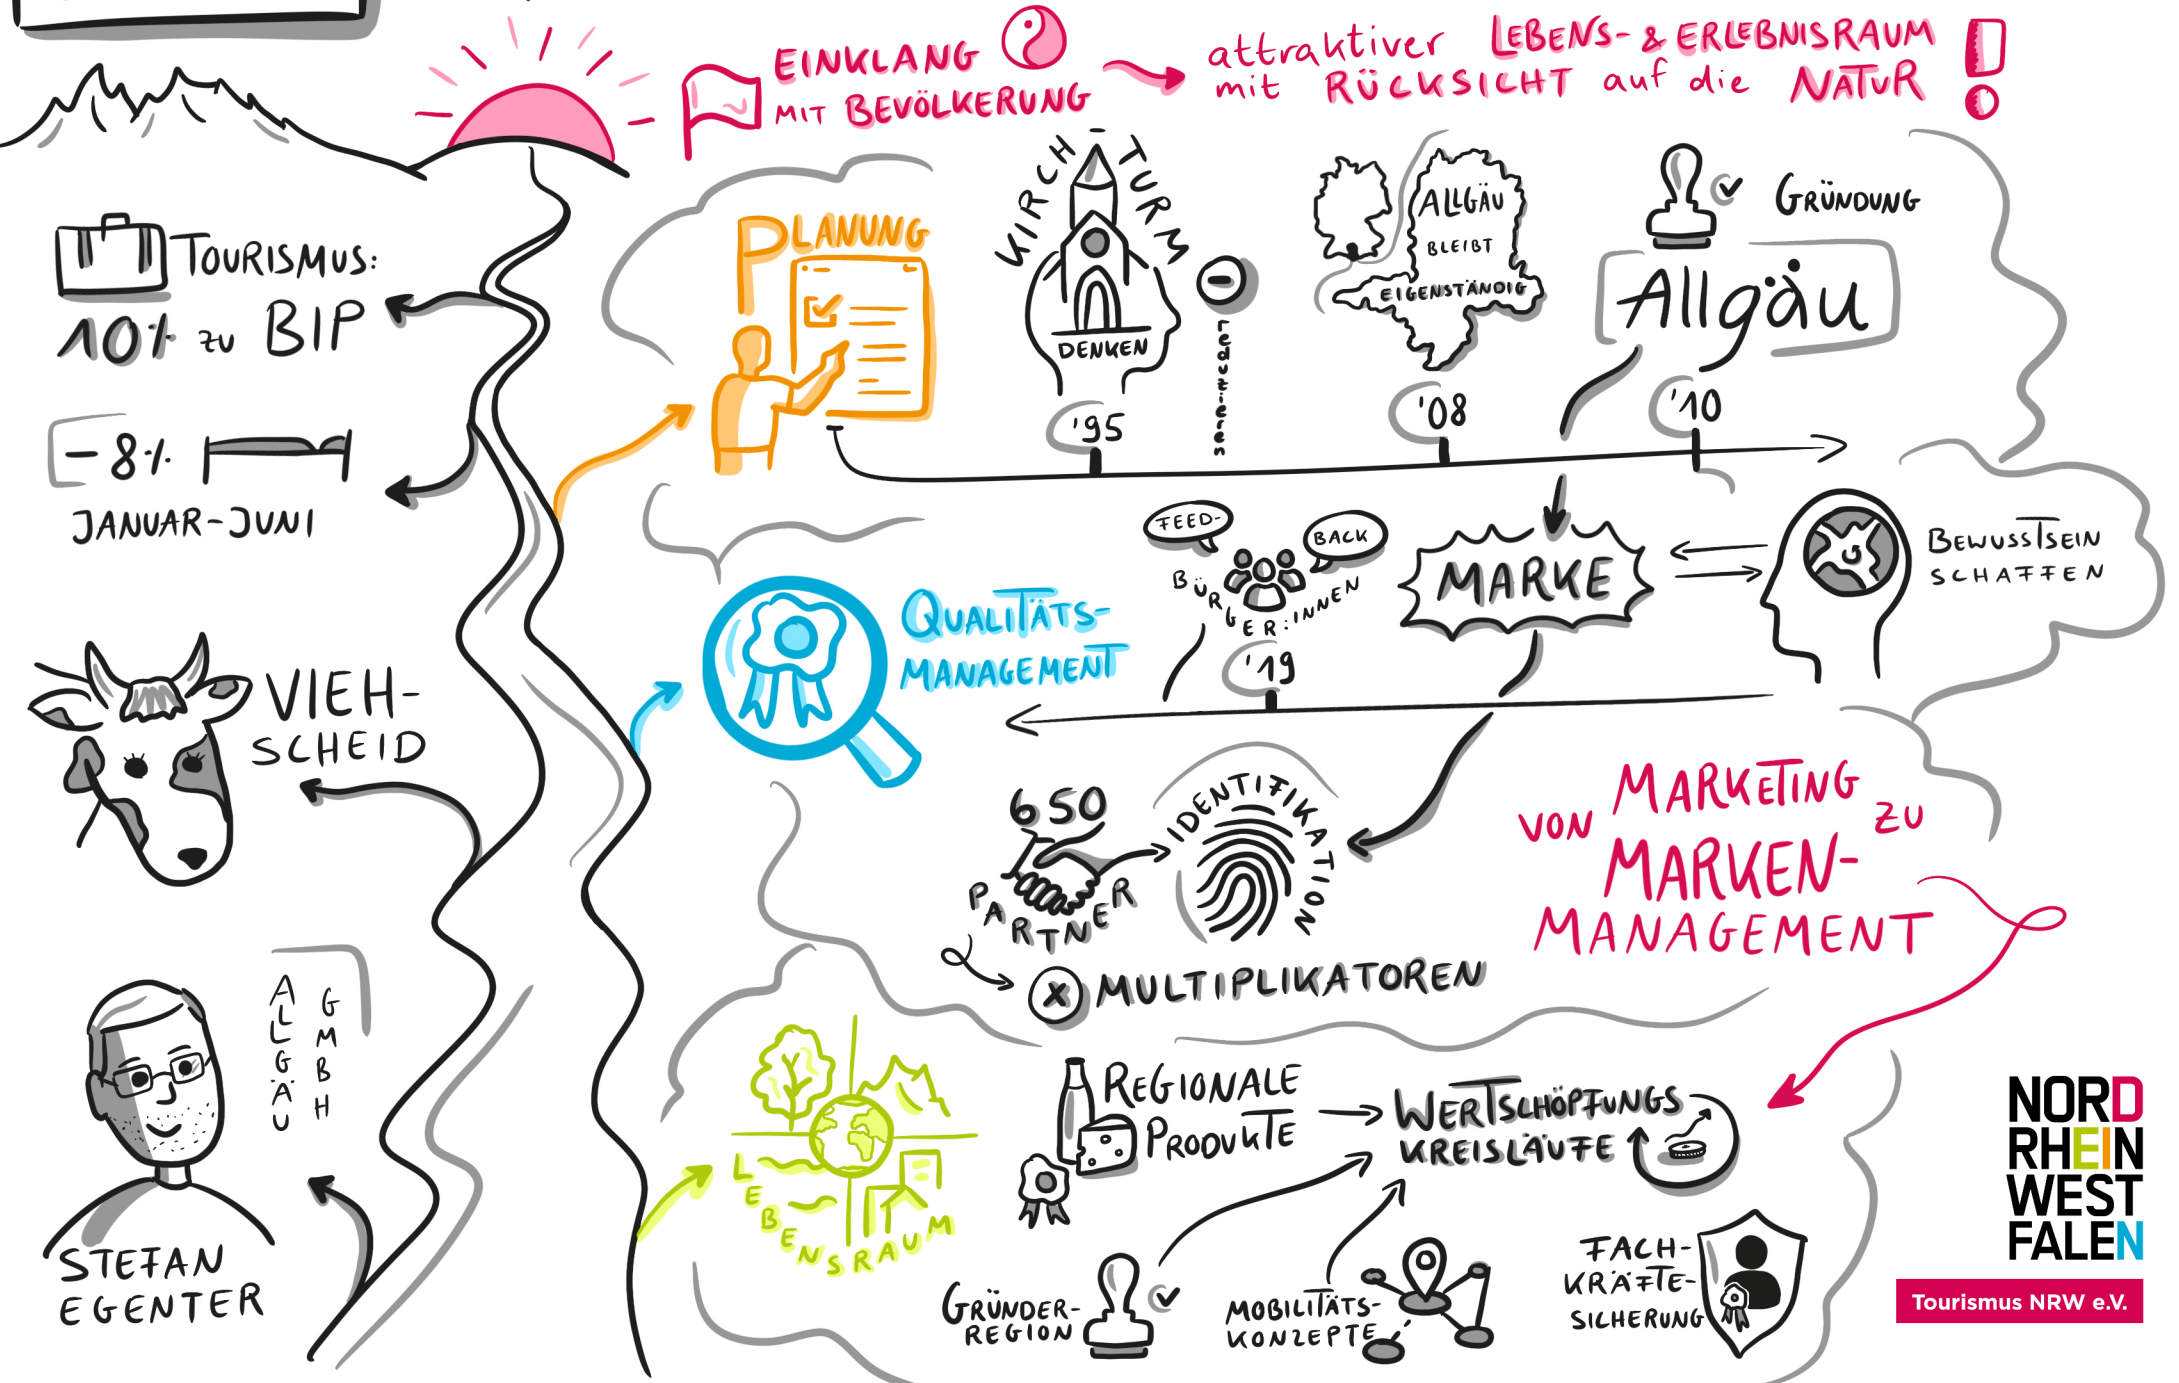 EINKLANG
MIT BEVÖLKERUNG
attraktiver LEBENS- & ERLEBNISRAUM
mit RÜCKSICHT auf die NATUR
TOURISMUS:
10% zu BIP
-8%
JANUAR-JUNI
VIEH-
SCHEID
ALLGÄU
GMBH
STEFAN
EGENTER
PLANUNG
KIRCH
TURM
DENKEN
reduzieren
'95
ALLGÄU
BLEIBT
EIGENSTÄNDIG
'08
GRÜNDUNG
Allgäu
'10
QUALITÄTS-
MANAGEMENT
FEED-
BACK
BÜRGER:INNEN
'19
MARKE
BEWUSSTSEIN
SCHAFFEN
650
PARTNER
IDENTIFIKATION
X MULTIPLIKATOREN
VON MARKETING ZU
MARKEN-
MANAGEMENT
LEBENSRAUM
REGIONALE
PRODUKTE
WERTSCHÖPFUNGS
KREISLÄUFE
GRÜNDER-
REGION
MOBILITÄTS-
KONZEPTE
FACH-
KRÄFTE-
SICHERUNG
NORD
RHEIN
WEST
FALEN
Tourismus NRW e.V.